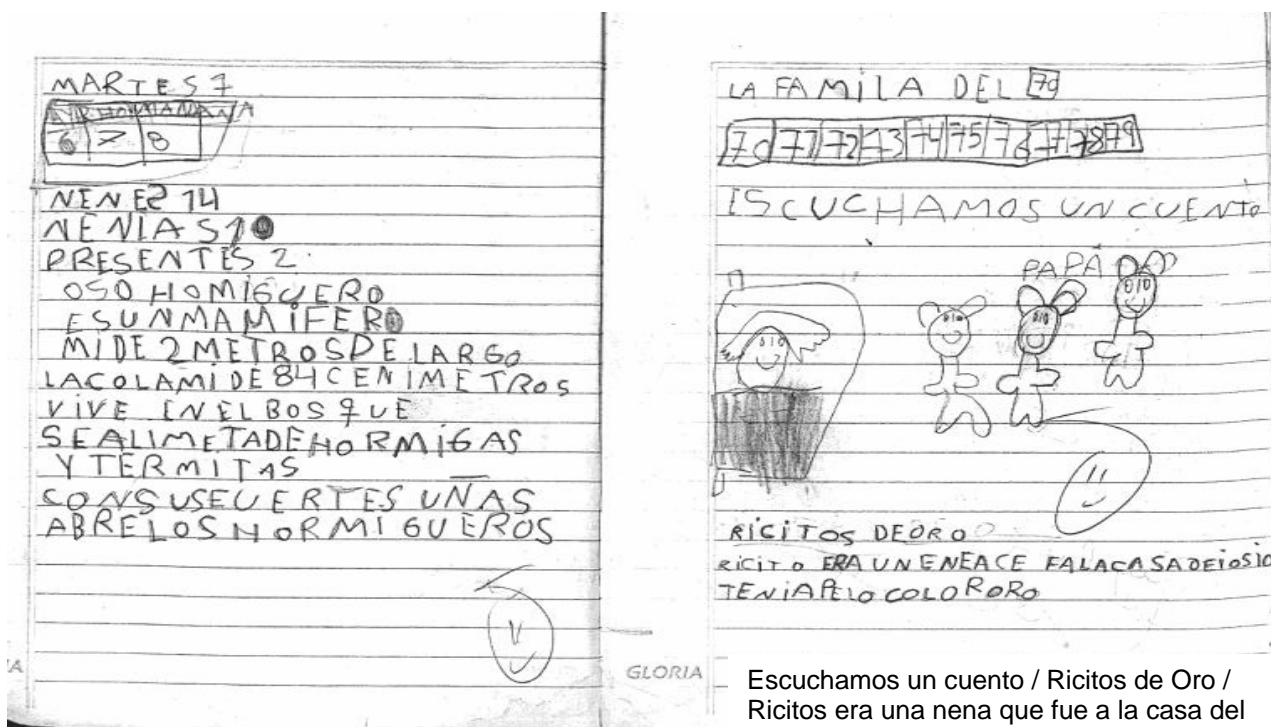 MARTES 7
AYER HOY MAÑANA
6 7 8
NENES 14
NENIAS 10
PRESENTES 2
OSO HOMIGUERO
ES UN MAMIFERO
MIDE 2 METROS DE LARGO
LA COLA MIDE 84 CENIMETROS
VIVE EN EL BOSQUE
SE ALIMETA DE HORMIGAS
Y TERMITAS
CON SUS EUERTES UÑAS
ABRE LOS HORMIGUEROS
LA FAMILA DEL 70
70 71 72 73 74 75 76 77 78 79
ESCUCHAMOS UN CUENTO
PAPÁ
RICITOS DE ORO
RICITO ERA UN ENEACE FALACASADEIOSIO
TENIA PELO COLOR ORO
GLORIA
Escuchamos un cuento / Ricitos de Oro /
Ricitos era una nena que fue a la casa del